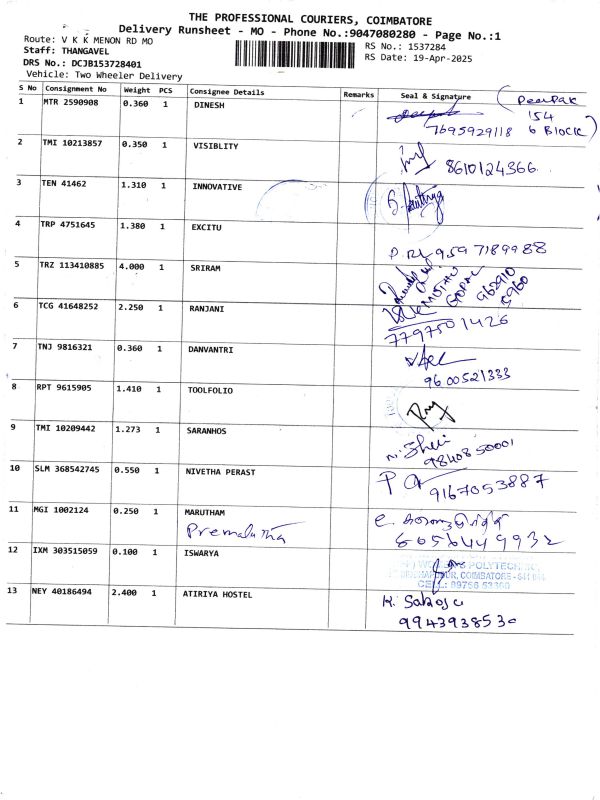 THE PROFESSIONAL COURIERS, COIMBATORE
Delivery Runsheet - MO - Phone No.:9047080280 - Page No.:1
Route: V K K MENON RD MO
RS No.: 1537284
Staff: THANGAVEL
RS Date: 19-Apr-2025
DRS No.: DCJB153728401
Vehicle: Two Wheeler Delivery
S No Consignment No Weight PCS Consignee Details Remarks Seal & Signature
1 MTR 2590908 0.360 1 DINESH
Deepak
154
7695929118 6 BLOCK
2 TMI 10213857 0.350 1 VISIBLITY
8610124366
3 TEN 41462 1.310 1 INNOVATIVE
4 TRP 4751645 1.380 1 EXCITU
9597189988
5 TRZ 113410885 4.000 1 SRIRAM
MUTHU
GOPAL
6 TCG 41648252 2.250 1 RANJANI
7797501426
7 TNJ 9816321 0.360 1 DANVANTRI
9600521333
8 RPT 9615905 1.410 1 TOOLFOLIO
9 TMI 10209442 1.273 1 SARANHOS
9840850001
10 SLM 368542745 0.550 1 NIVETHA PERAST
9167053887
11 MGI 1002124 0.250 1 MARUTHAM
Premalatha
6056449932
12 IXM 303515059 0.100 1 ISWARYA
POLYTECHNIC,
COIMBATORE - 641
CELL: 89756 53300
13 NEY 40186494 2.400 1 ATIRIYA HOSTEL
9943938530